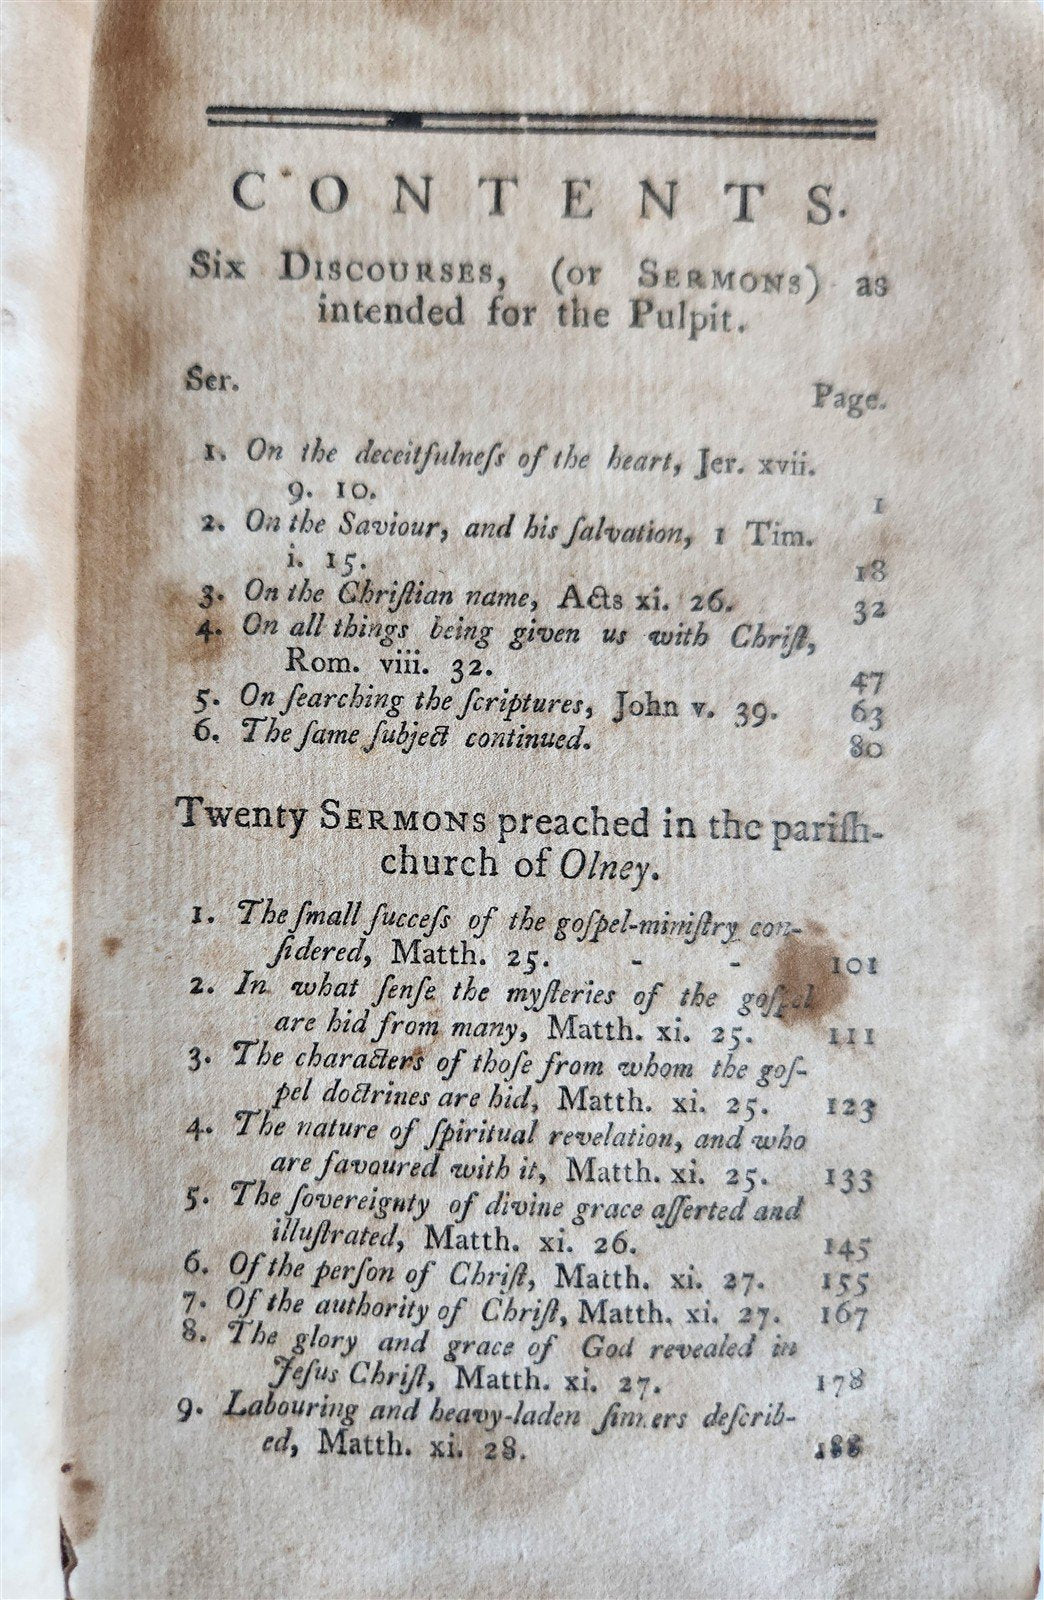 CONTENTS.
Six DISCOURSES, (or SERMONS) as
intended for the Pulpit.
Ser.
Page.
1. On the deceitfulneſs of the heart, Jer. xvii.
9. 10. 1
2. On the Saviour, and his ſalvation, 1 Tim.
i. 15. 18
3. On the Chriſtian name, Acts xi. 26. 32
4. On all things being given us with Chriſt,
Rom. viii. 32. 47
5. On ſearching the ſcriptures, John v. 39. 63
6. The ſame ſubject continued. 80
Twenty SERMONS preached in the pariſh-
church of Olney.
1. The ſmall ſucceſs of the goſpel-miniſtry con-
ſidered, Matth. 25. - - 101
2. In what ſenſe the myſteries of the goſpel
are hid from many, Matth. xi. 25. 111
3. The characters of thoſe from whom the goſ-
pel doctrines are hid, Matth. xi. 25. 123
4. The nature of ſpiritual revelation, and who
are favoured with it, Matth. xi. 25. 133
5. The ſovereignty of divine grace aſſerted and
illuſtrated, Matth. xi. 26. 145
6. Of the perſon of Chriſt, Matth. xi. 27. 155
7. Of the authority of Chriſt, Matth. xi. 27. 167
8. The glory and grace of God revealed in
Jeſus Chriſt, Matth. xi. 27. 178
9. Labouring and heavy-laden ſinners deſcrib-
ed, Matth. xi. 28. 188